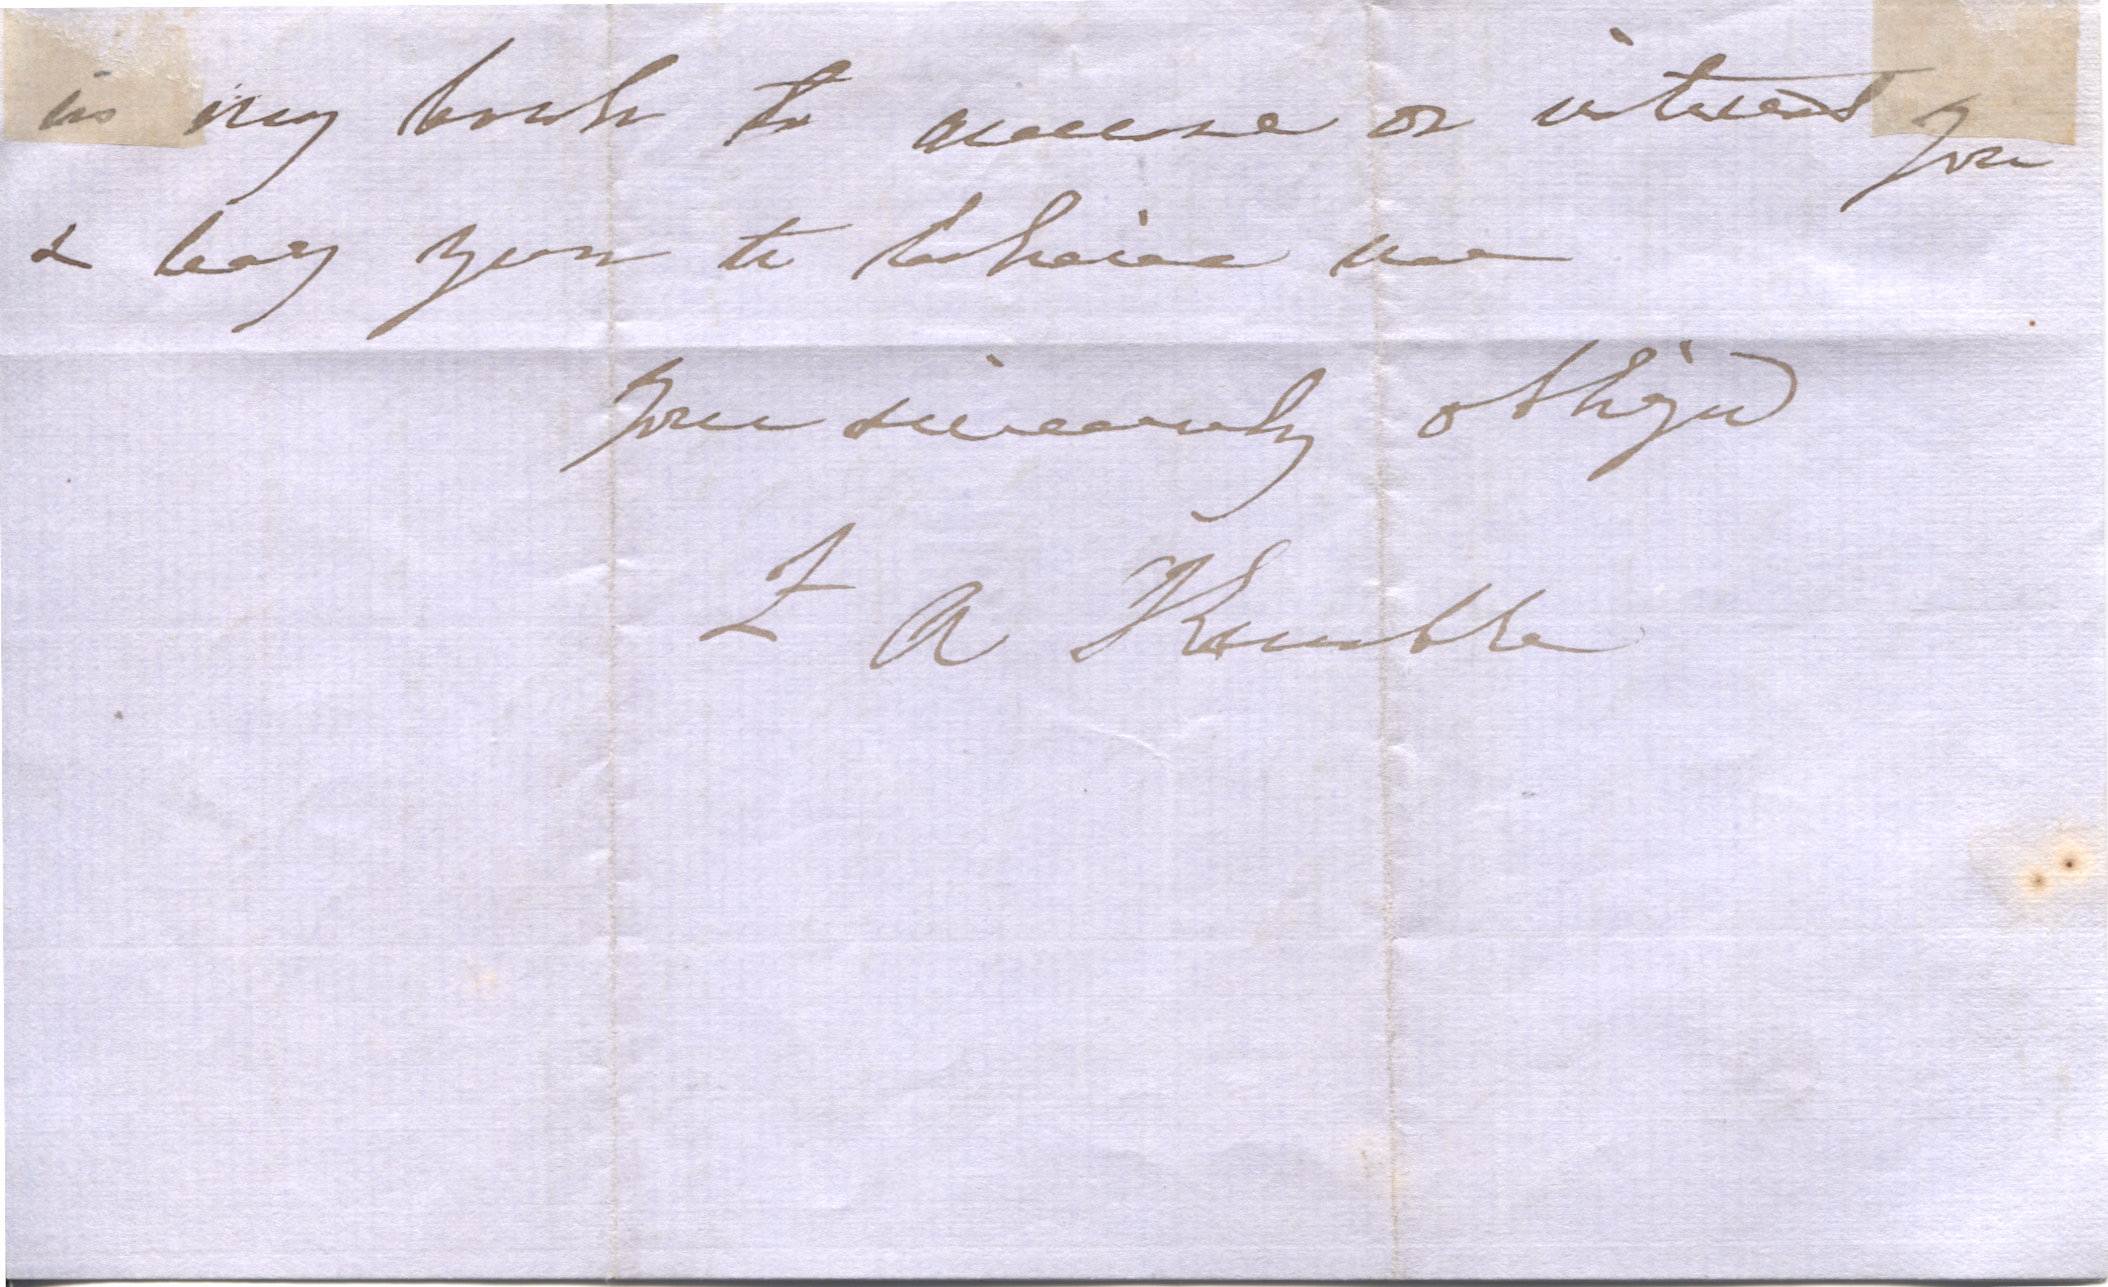 in my book to amuse or interest you
& beg you to believe me
Your sincerely obliged
F A Kemble